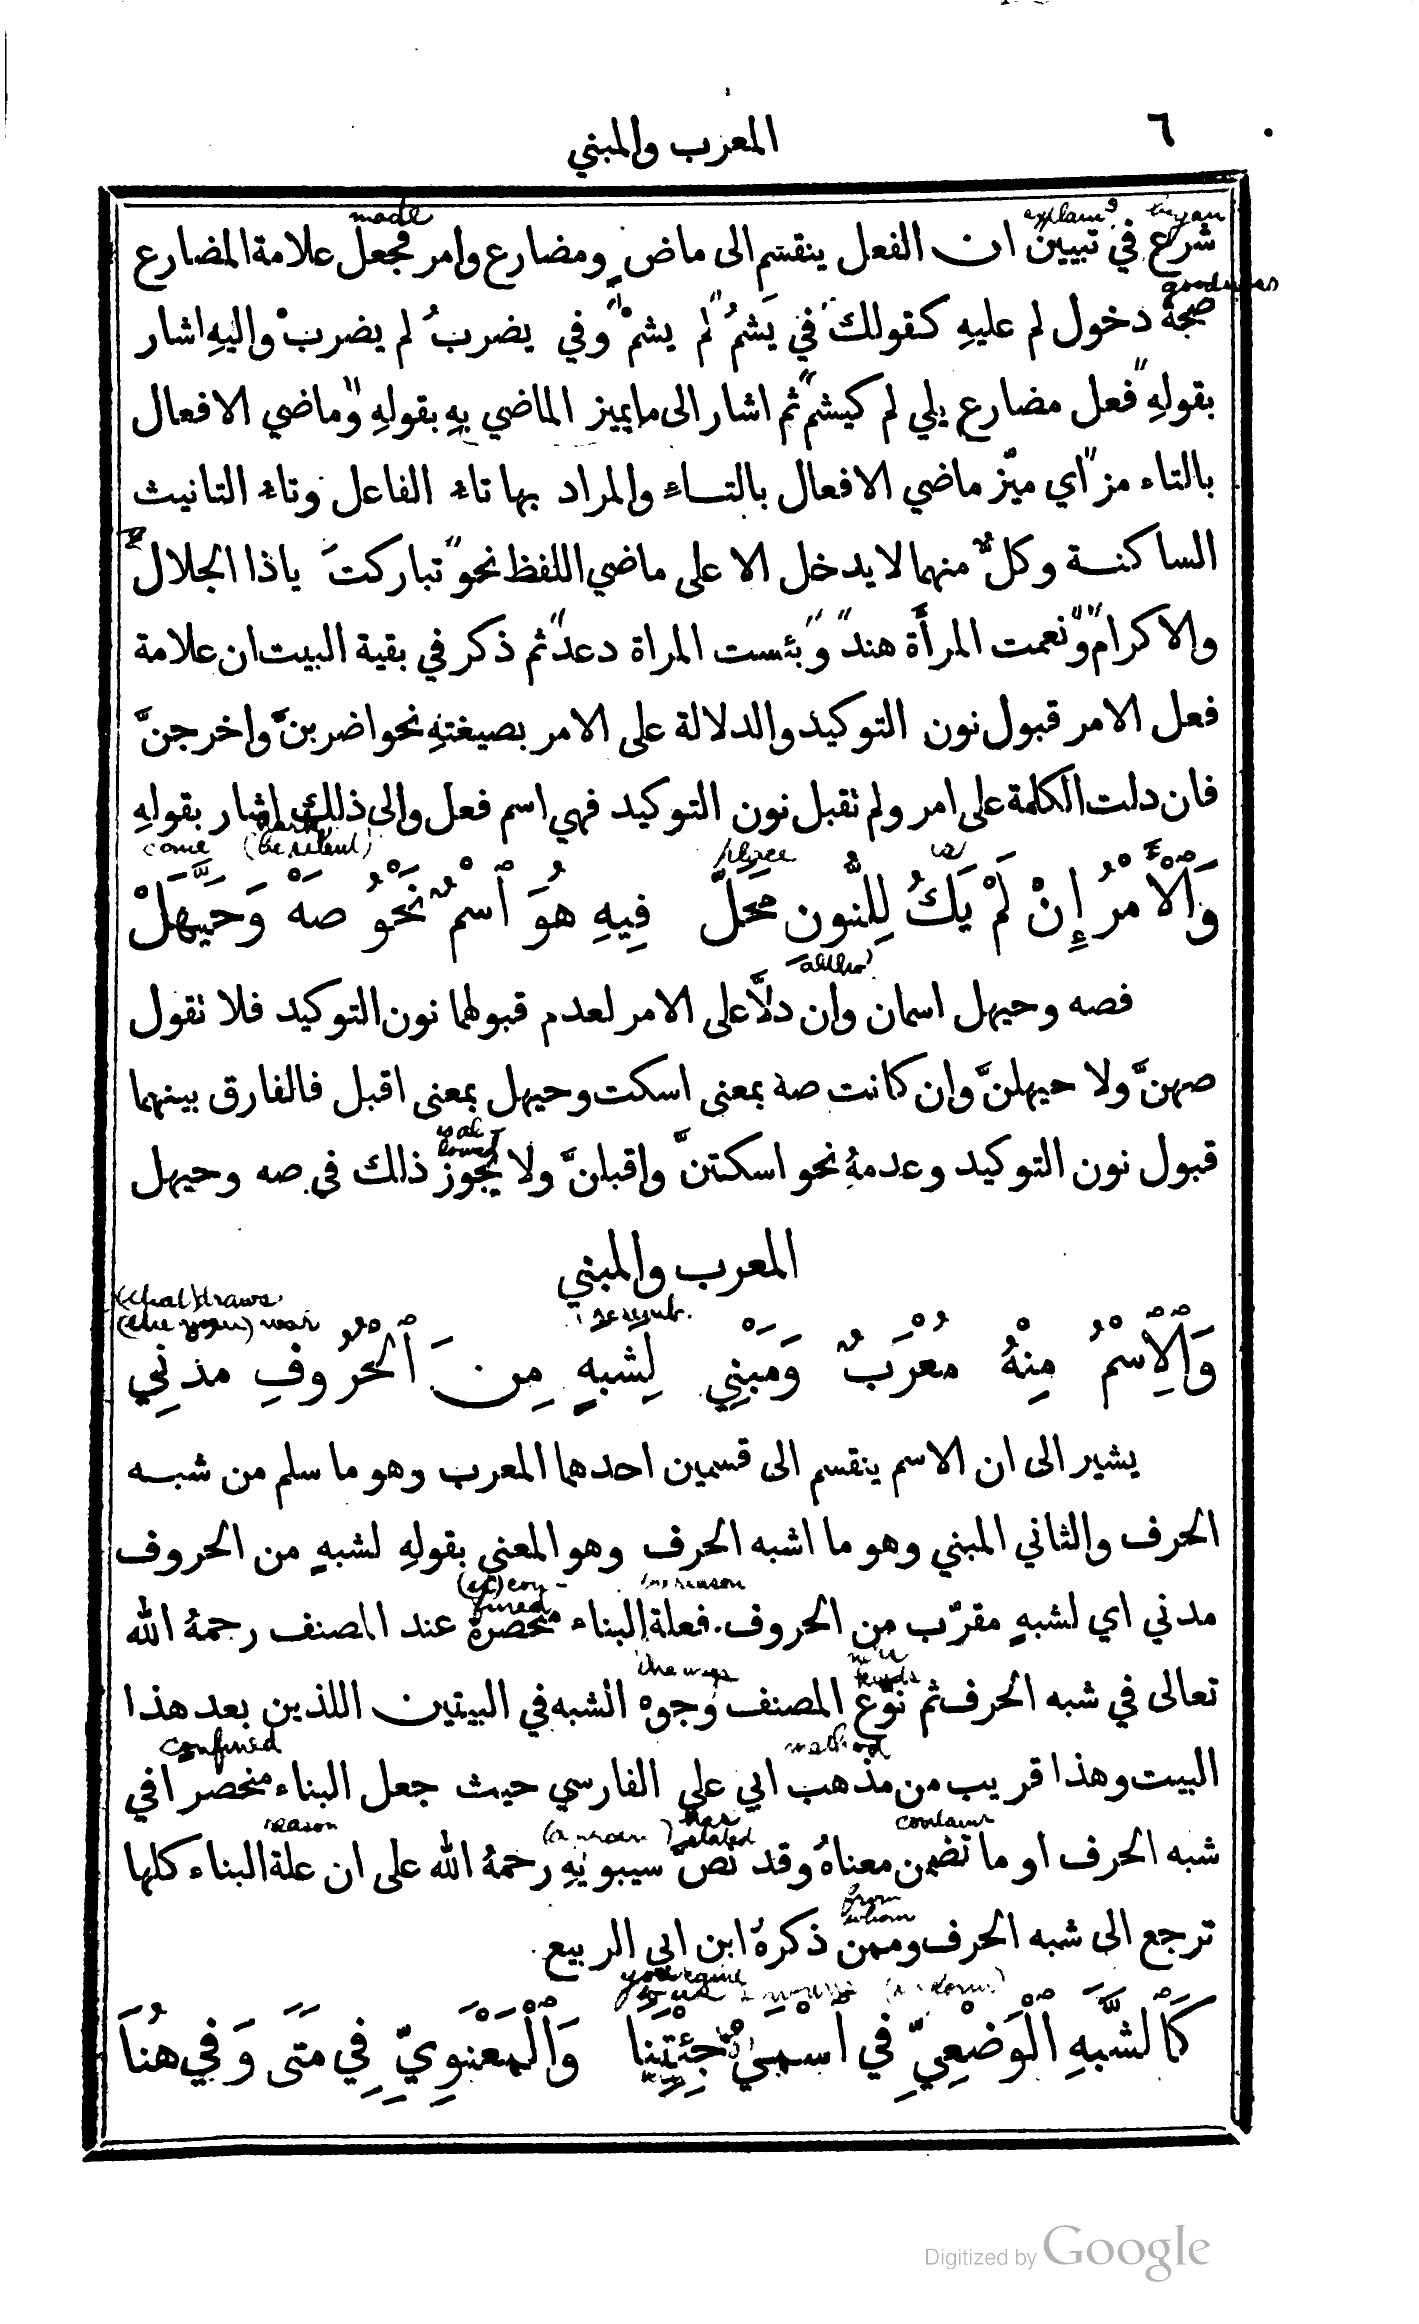 ٦ المعرب والمبني
شرع في تبيين ان الفعل ينقسم الى ماضٍ ومضارع وامر فجعل علامة المضارع
صحة دخول لم عليهِ كقولك في يَشمُ لم يشمْ وفي يضربُ لم يضربْ واليهِ اشار
بقولهِ فعل مضارع يلي لم كيشم ثم اشار الى ما يميز الماضي بهِ بقولهِ وماضي الافعال
بالتاء مز اي ميّز ماضي الافعال بالتاء والمراد بها تاء الفاعل وتاء التانيث
الساكنة وكلٌّ منهما لا يدخل الا على ماضي اللفظ نحو تباركتَ ياذا الجلال
والاكرام ونعمت المرأة هند وبئست المراة دعد ثم ذكر في بقية البيت ان علامة
فعل الامر قبول نون التوكيد والدلالة على الامر بصيغتهِ نحو اضربنَّ واخرجنَّ
فان دلت الكلمة على امر ولم تقبل نون التوكيد فهي اسم فعل والى ذلك اشار بقولهِ
come (be silent)
place
وَٱلْأَمْرُ إِنْ لَمْ يَكُ لِلنُّونِ مَحَلّْ فِيهِ هُوَ ٱسْمٌ نَحْوُ صَهْ وَحَيَّهَلْ
altho'
فصه وحيهل اسمان وان دلَّا على الامر لعدم قبولهما نون التوكيد فلا تقول
صهنَّ ولا حيهلنَّ وان كانت صه بمعنى اسكت وحيهل بمعنى اقبل فالفارق بينهما
قبول نون التوكيد وعدمهُ نحو اسكتنَّ واقبلنَّ ولا يجوز ذلك في صه وحيهل
المعرب والمبني
وَٱلِٱسْمُ مِنْهُ مُعْرَبٌ وَمَبْنِي لِشَبَهٍ مِنَ ٱلْحُرُوفِ مُدْنِي
يشير الى ان الاسم ينقسم الى قسمين احدهما المعرب وهو ما سلم من شبه
الحرف والثاني المبني وهو ما اشبه الحرف وهو المعني بقولهِ لشبهٍ من الحروف
مدني اي لشبهٍ مقرّب من الحروف. فعلة البناء منحصرة عند المصنف رحمهُ الله
تعالى في شبه الحرف ثم نوّع المصنف وجوه الشبه في البيتين اللذين بعد هذا
confined method
البيت وهذا قريب من مذهب ابي علي الفارسي حيث جعل البناء منحصرا في
reason has related contains
شبه الحرف او ما تضمن معناهُ وقد نصّ سيبويهِ رحمهُ الله على ان علة البناء كلها
from whom
ترجع الى شبه الحرف وممن ذكرهُ ابن ابي الربيع
كَٱلشَّبَهِ ٱلْوَضْعِيِّ فِي ٱسْمَيْ جِئْتَنَا وَٱلْمَعْنَوِيِّ فِي مَتَى وَفِي هُنَا
Digitized by Google